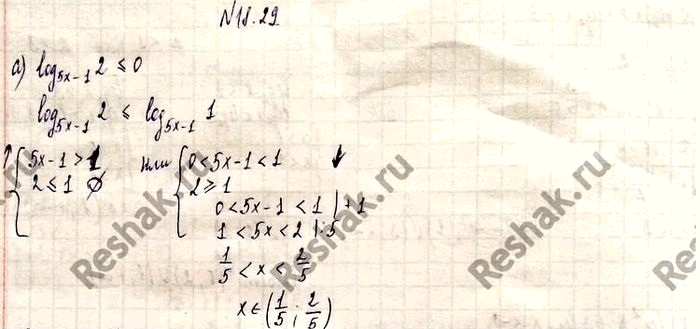 N18.29
а) log₅ₓ₋₁ 2 ≤ 0
log₅ₓ₋₁ 2 ≤ log₅ₓ₋₁ 1
↑ { 5x-1 > 1 или { 0 < 5x-1 < 1 ↓
2 ≤ 1 ∅ 2 ≥ 1
0 < 5x-1 < 1 | +1
1 < 5x < 2 | :5
1/5 < x < 2/5
x ∈ (1/5 ; 2/5)
Reshak.ru
Reshak.ru
Reshak.ru
Reshak.ru